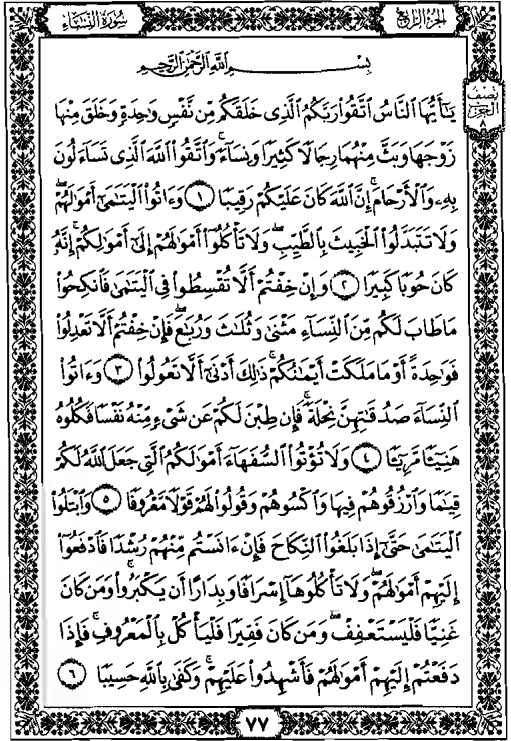 سُورَةُ النِّسَاءِ
الجُزءُ الرَّابِعُ
نِصْفُ
الحِزْبِ
٨
بِسْمِ اللَّهِ الرَّحْمَٰنِ الرَّحِيمِ
يَـٰٓأَيُّهَا ٱلنَّاسُ ٱتَّقُواْ رَبَّكُمُ ٱلَّذِى خَلَقَكُم مِّن نَّفْسٍ وَٰحِدَةٍ وَخَلَقَ مِنْهَا
زَوْجَهَا وَبَثَّ مِنْهُمَا رِجَالًا كَثِيرًا وَنِسَآءً ۚ وَٱتَّقُواْ ٱللَّهَ ٱلَّذِى تَسَآءَلُونَ
بِهِۦ وَٱلْأَرْحَامَ ۚ إِنَّ ٱللَّهَ كَانَ عَلَيْكُمْ رَقِيبًا ١ وَءَاتُواْ ٱلْيَتَـٰمَىٰٓ أَمْوَٰلَهُمْ ۖ
وَلَا تَتَبَدَّلُواْ ٱلْخَبِيثَ بِٱلطَّيِّبِ ۖ وَلَا تَأْكُلُوٓاْ أَمْوَٰلَهُمْ إِلَىٰٓ أَمْوَٰلِكُمْ ۚ إِنَّهُۥ
كَانَ حُوبًا كَبِيرًا ٢ وَإِنْ خِفْتُمْ أَلَّا تُقْسِطُواْ فِى ٱلْيَتَـٰمَىٰ فَٱنكِحُواْ
مَا طَابَ لَكُم مِّنَ ٱلنِّسَآءِ مَثْنَىٰ وَثُلَـٰثَ وَرُبَـٰعَ ۖ فَإِنْ خِفْتُمْ أَلَّا تَعْدِلُواْ
فَوَٰحِدَةً أَوْ مَا مَلَكَتْ أَيْمَـٰنُكُمْ ۚ ذَٰلِكَ أَدْنَىٰٓ أَلَّا تَعُولُواْ ٣ وَءَاتُواْ
ٱلنِّسَآءَ صَدُقَـٰتِهِنَّ نِحْلَةً ۚ فَإِن طِبْنَ لَكُمْ عَن شَىْءٍ مِّنْهُ نَفْسًا فَكُلُوهُ
هَنِيٓـًٔا مَّرِيٓـًٔا ٤ وَلَا تُؤْتُواْ ٱلسُّفَهَآءَ أَمْوَٰلَكُمُ ٱلَّتِى جَعَلَ ٱللَّهُ لَكُمْ
قِيَـٰمًا وَٱرْزُقُوهُمْ فِيهَا وَٱكْسُوهُمْ وَقُولُواْ لَهُمْ قَوْلًا مَّعْرُوفًا ٥ وَٱبْتَلُواْ
ٱلْيَتَـٰمَىٰ حَتَّىٰٓ إِذَا بَلَغُواْ ٱلنِّكَاحَ فَإِنْ ءَانَسْتُم مِّنْهُمْ رُشْدًا فَٱدْفَعُوٓاْ
إِلَيْهِمْ أَمْوَٰلَهُمْ ۖ وَلَا تَأْكُلُوهَآ إِسْرَافًا وَبِدَارًا أَن يَكْبَرُواْ ۚ وَمَن كَانَ
غَنِيًّا فَلْيَسْتَعْفِفْ ۖ وَمَن كَانَ فَقِيرًا فَلْيَأْكُلْ بِٱلْمَعْرُوفِ ۚ فَإِذَا
دَفَعْتُمْ إِلَيْهِمْ أَمْوَٰلَهُمْ فَأَشْهِدُواْ عَلَيْهِمْ ۚ وَكَفَىٰ بِٱللَّهِ حَسِيبًا ٦
٧٧